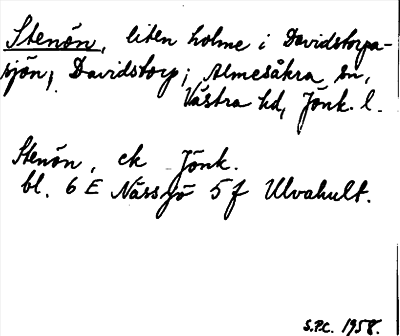 Stenön, liten holme i Davidstorpa-
sjön, Davidstorp; Almesåkra sn,
Västra hd, Jönk. l.
Stenön, ek Jönk.
bl. 6 E Nässjö 5 f Ulvahult.
S.P.C. 1958.